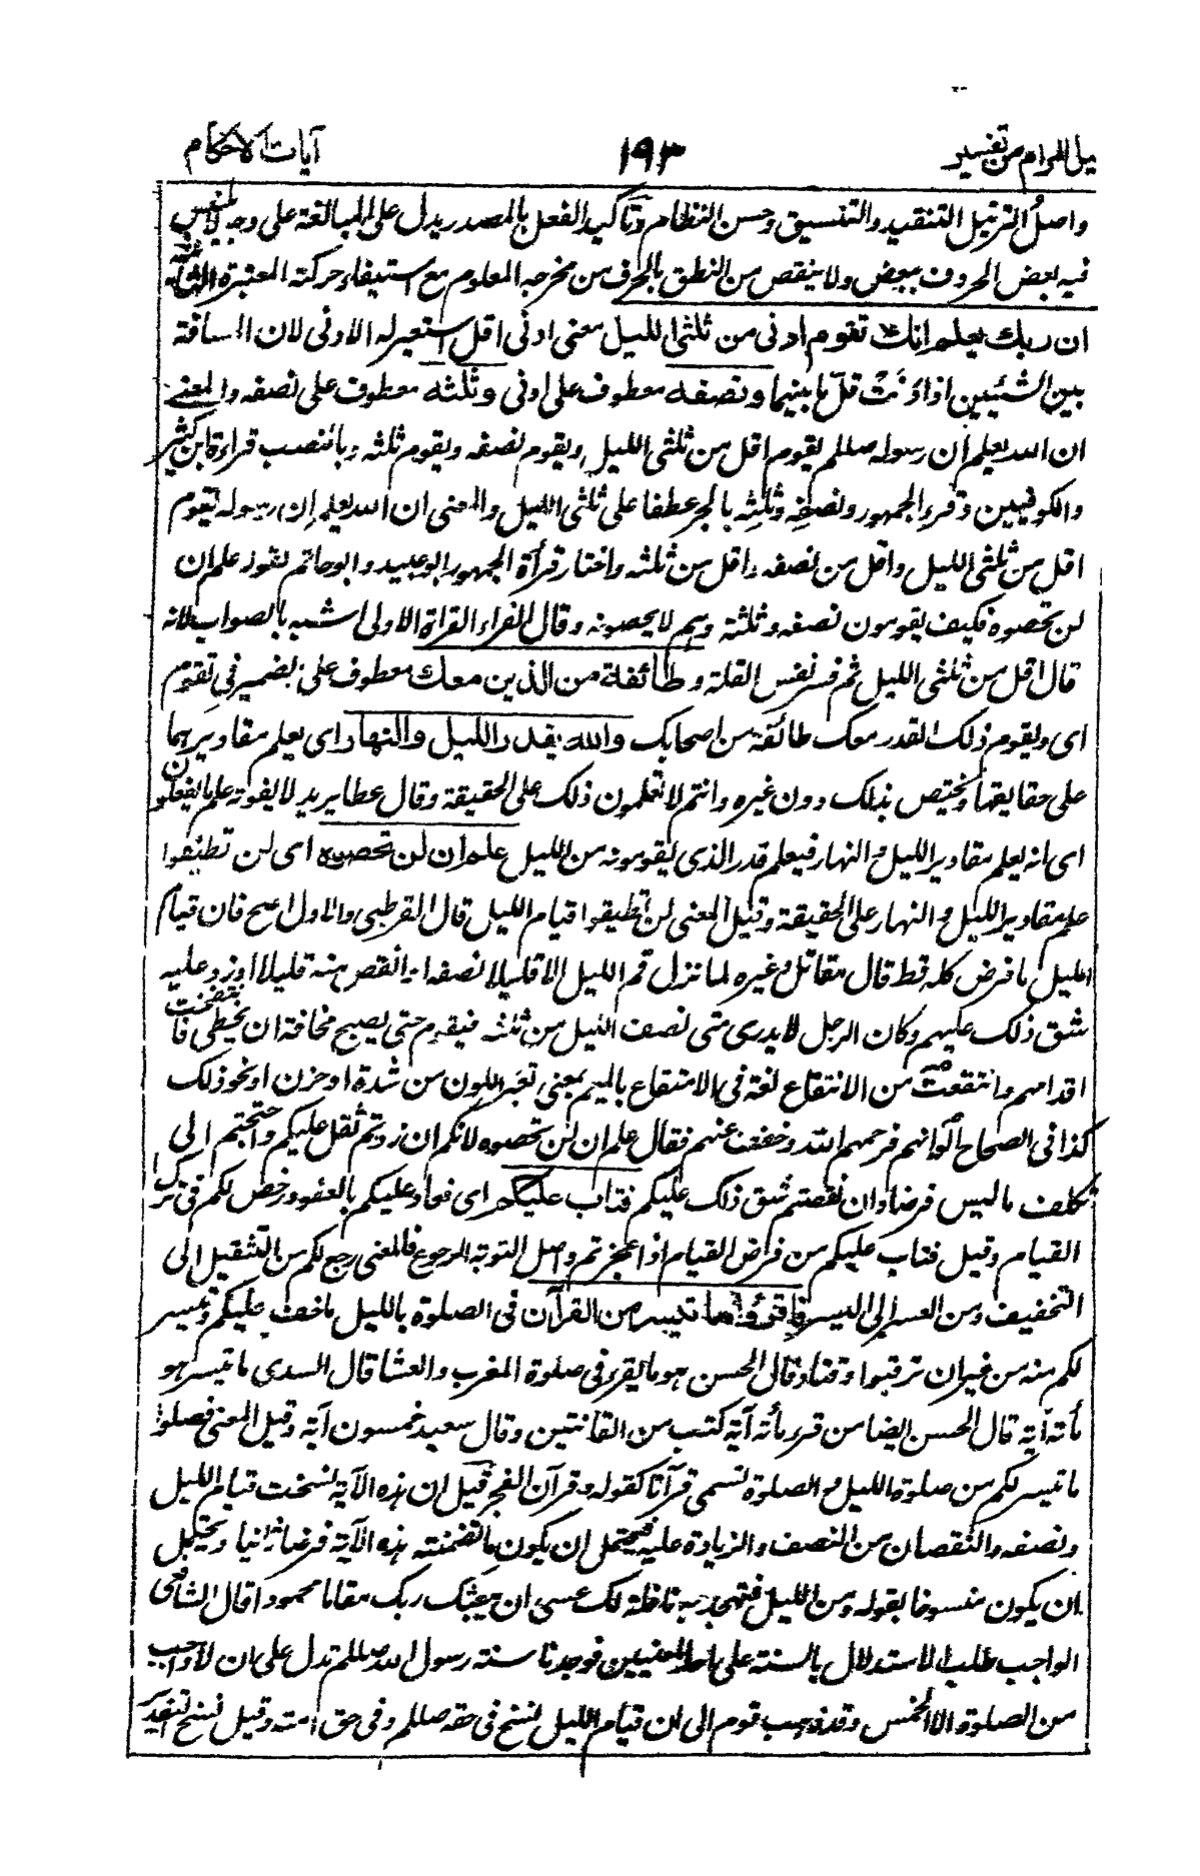 يل المرام من تفسير ١٩٣ آيات الاحكام
واصل الترتيل التنقيد والتنسيق وحسن النظام وتاكيد الفعل بالمصدر يدل على المبالغة على وجه لا يلتبس
فيه بعض الحروف ببعض ولا ينقص من النطق بالحرف من مخرجه المعلوم مع استيفاء حركة المعتبرة الثالثة
ان ربك يعلم انك تقوم ادنى من ثلثى الليل معنى ادنى اقل استعير له الادنى لان المسافة
بين الشيئين اذا دَنَتْ قلّ ما بينهما ونصفه معطوف على ادنى وثلثه معطوف على نصفه والمعنى
ان الله يعلم ان رسوله صللم يقوم اقل من ثلثى الليل ويقوم نصفه ويقوم ثلثه وبالنصب قراءة ابن كثير
والكوفيين وقرء الجمهور ونصفِه وثلثِه بالجر عطفا على ثلثى الليل والمعنى ان الله يعلم ان رسوله يقوم
اقل من ثلثى الليل واقل من نصفه واقل من ثلثه واختار قرأة الجمهور ابو عبيد وابو حاتم لقوله علم ان
لن تحصوه فكيف يقومون نصفه وثلثه وهم لا يحصونه وقال الفراء القراة الاولى اشبه بالصواب لانه
قال اقل من ثلثى الليل ثم فسر نفس القلة وطائفة من الذين معك معطوف على الضمير فى تقوم
اى ويقوم ذلك القدر معك طائفة من اصحابك والله يقدر الليل والنهار اى يعلم مقاديرهما
على حقايقها ويختص بذلك دون غيره وانتم لا تعلمون ذلك على الحقيقة وقال عطا يريد لا يفوته علم ما يفعلون
اى انه يعلم مقادير الليل والنهار فيعلم قدر الذى يقومونه من الليل علم ان لن تحصوه اى لن تطيقوا
علم مقادير الليل والنهار على الحقيقة وقيل المعنى لن تطيقوا قيام الليل قال القرطبى والاول اصح فان قيام
الليل ما فرض كله قط قال مقاتل وغيره لما نزل قم الليل الا قليلا نصفه او انقص منه قليلا او زد عليه
شق ذلك عليهم وكان الرجل لا يدرى متى نصف الليل من ثلثه فيقوم حتى يصبح مخافة ان يخطى فانتفخت
اقدامهم وانتقعت من الانتقاع لغة فى الامتقاع بالميم بمعنى تغير اللون من شدة او حزن او نحو ذلك
كذا فى الصحاح الوانهم فرحمهم الله وخفف عنهم فقال علم ان لن تحصوه لانكم ان زدتم ثقل عليكم واحتجتم الى
تكلف ما ليس فرضا وان نقصتم شق ذلك عليكم فتاب عليكم اى فعاد عليكم بالعفو ورخص لكم فى ترك
القيام وقيل فتاب عليكم من فرض القيام اذا عجزتم واصل التوبة الرجوع فالمعنى رجع لكم من التثقيل الى
التخفيف ومن العسر الى اليسر فاقرؤا ما تيسر من القرآن فى الصلوة بالليل ما خف عليكم وتيسر
لكم منه من غير ان ترقبوا وقتا وقال الحسن هو ما يقرء فى صلوة المغرب والعشا قال السدى ما تيسر هو
مأته آية قال الحسن ايضا من قرء مأته آية كتب من القانتين وقال سعيد خمسون آية وقيل المعنى فصلوا
ما تيسر لكم من صلوة الليل والصلوة تسمى قرآنا كقوله وقرآن الفجر قيل ان هذه الآية نسخت قيام الليل
ونصفه والنقصان من النصف والزيادة عليه فيحتمل ان يكون ما تضمنته هذه الآية فرضا ثانيا ويحتمل
ان يكون منسوخا بقوله ومن الليل فتهجد به نافلة لك عسى ان يبعثك ربك مقاما محمودا قال الشافعى
الواجب طلب الاستدلال بالسنة على احد المعنيين فوجدنا سنة رسول الله صللم تدل على ان لا واجب
من الصلوة الا الخمس وقد ذهب قوم الى ان قيام الليل نسخ فى حقه صللم وفى حق امته وقيل نسخ التقدير